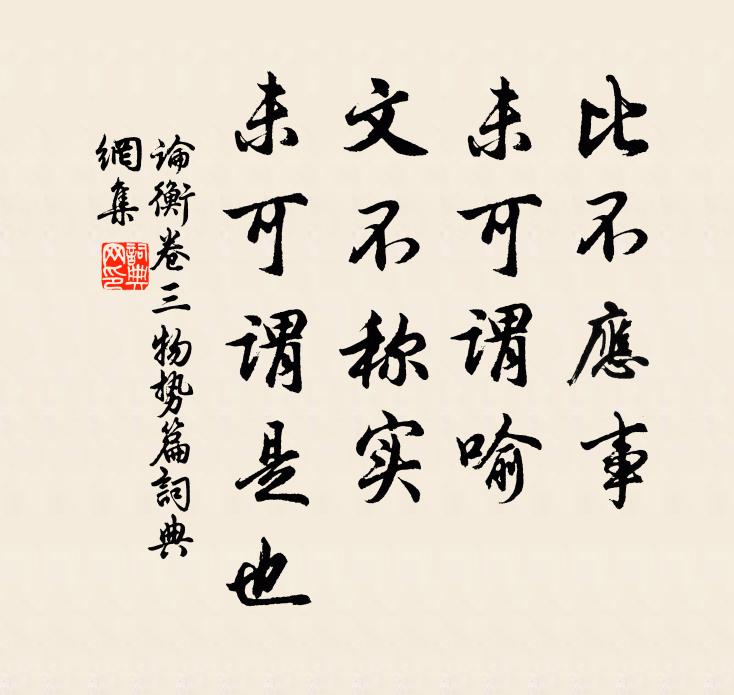 比不應事
未可谓喻
文不称实
未可谓是也
论衡卷三物势篇詞典
網集
詞典
网印